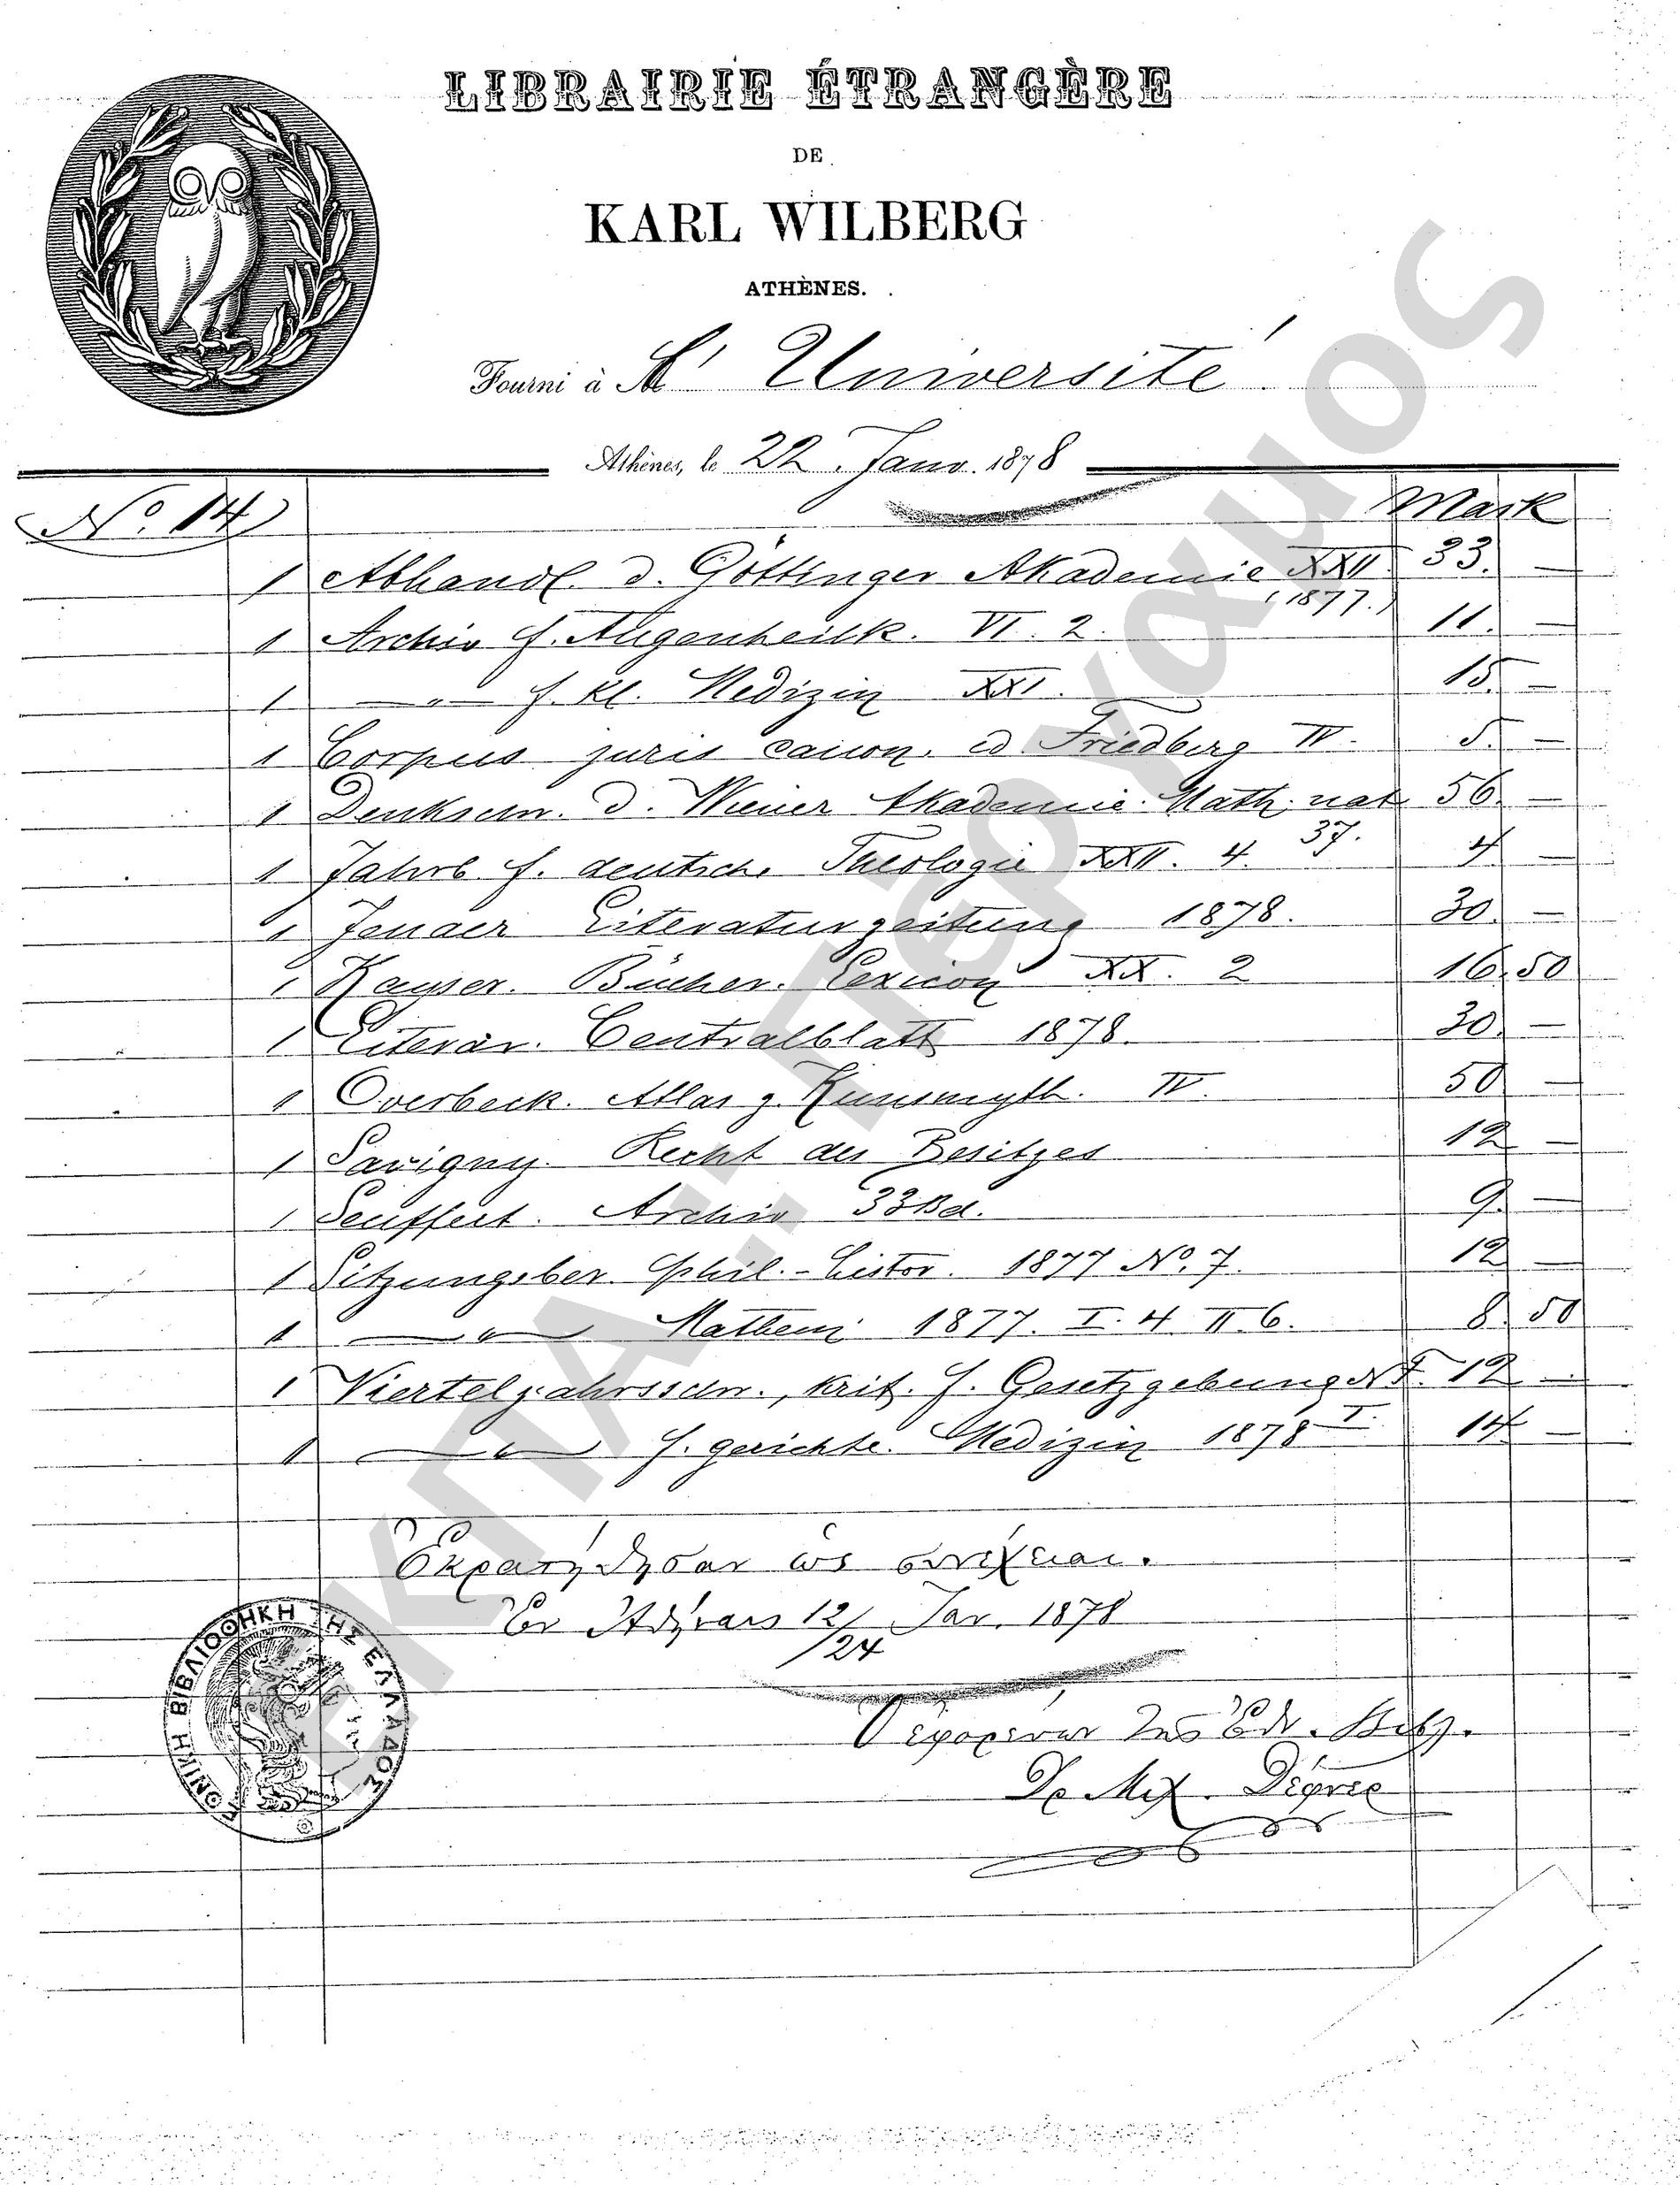 LIBRAIRIE ÉTRANGÈRE
DE
KARL WILBERG
ATHÈNES.
Fourni à l'Université
Athènes, le 22. Janv. 1878
No. 14 Mark
1 Abhandl. d. Göttinger Akademie XXII 33. —
(1877.)
1 Archiv f. Augenheilk. VI. 2. 11. —
1 —„— f. kl. Medizin XXI. 15. —
1 Corpus juris canon. ed Friedberg IV. 5. —
1 Denkschr. d. Wiener Akademie. Math. nat 56. —
37.
1 Jahrb. f. deutsche Theologie XXII. 4. 4 —
1 Jenaer Literaturzeitung 1878. 30. —
1 Kayser. Bücher. Lexicon XX. 2 16.50
1 Literar. Centralblatt 1878. 30. —
1 Overbeck. Atlas z. Kunsmyth. IV. 50 —
1 Savigny. Recht des Besitzes 12 —
1 Seuffert. Archiv 33 Bd. 9. —
1 Sitzungsber. phil.-histor. 1877 No. 7. 12 —
1 —„— Mathem 1877. I. 4 II. 6. 8. 50
1 Vierteljahrsschr., krit. f. Gesetzgebung N F. 12 —
I.
1 —„— f. gerichtl. Medizin 1878 14 —
Ἐκρατήθησαν ὡς συνέχειαι.
Ἐν Ἀθήναις 12/24 Ιαν. 1878
Ὁ ἐφορεύων τῆς Ἐθν. Βιβλ.
Δρ Μιχ. Δέφνερ
ΕΘΝΙΚΗ ΒΙΒΛΙΟΘΗΚΗ ΤΗΣ ΕΛΛΑΔΟΣ
ΕΚΠΑ: Πέργαμος